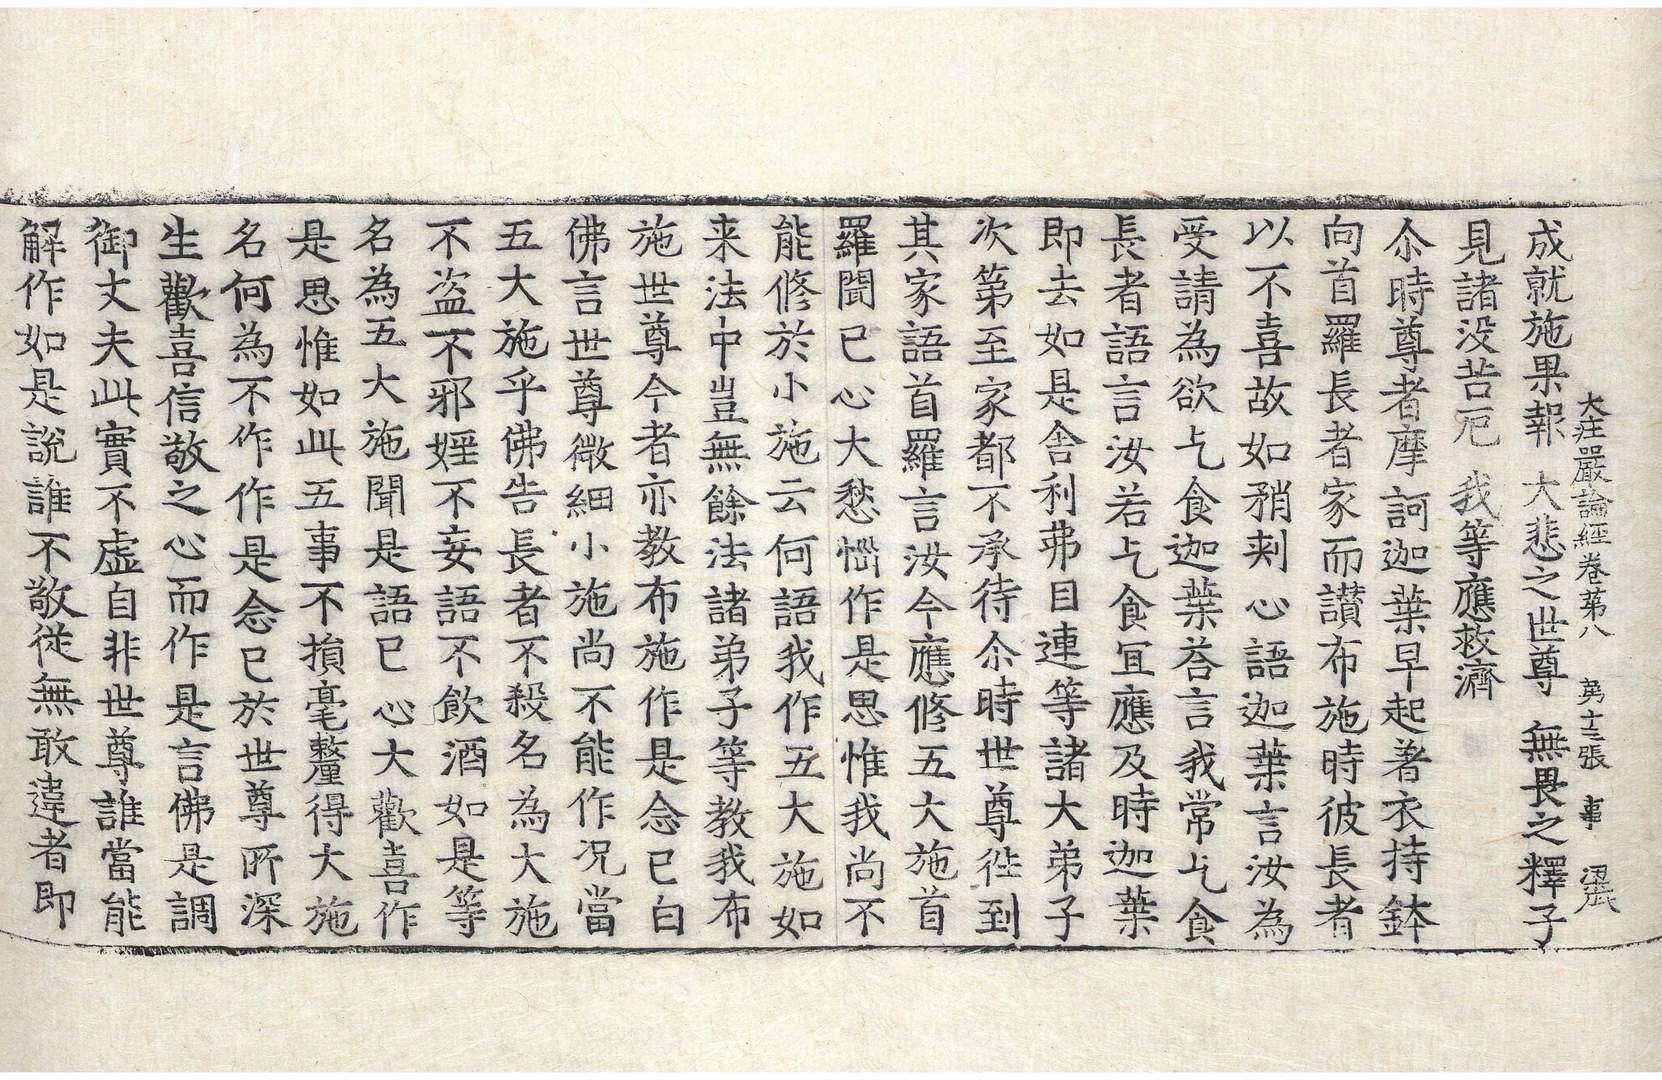 大庄嚴論經卷第八 第十三張 事
成就施果報 大悲之世尊 無畏之釋子
見諸没苦厄 我等應救濟
尒時尊者摩訶迦葉早起著衣持鉢
向首羅長者家而讃布施時彼長者
以不喜故如矟刾心語迦葉言汝為
受請為欲乞食迦葉荅言我常乞食
長者語言汝若乞食冝應及時迦葉
即去如是舍利弗目連等諸大弟子
次第至家都不承待尒時世尊徃到
其家語首羅言汝今應修五大施首
羅聞已心大愁惱作是思惟我尚不
能修於小施云何語我作五大施如
来法中豈無餘法諸弟子等教我布
施世尊今者亦教布施作是念已白
佛言世尊微細小施尚不能作况當
五大施乎佛告長者不殺名為大施
不盗不邪婬不妄語不飲酒如是等
名為五大施聞是語已心大歡喜作
是思惟如此五事不損毫釐得大施
名何為不作作是念已於世尊所深
生歡喜信敬之心而作是言佛是調
御丈夫此實不虛自非世尊誰當能
解作如是說誰不敬從無敢違者即